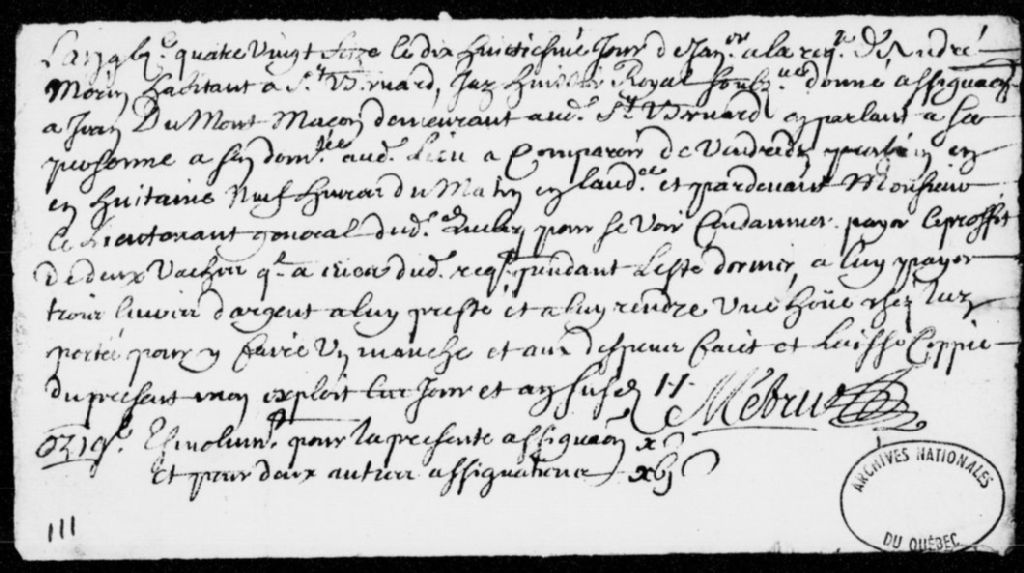 Lan gbj.c quatre vingt seize le dix huictiesme Jour de Jan.er a la req.te de André
Morin habitant a S.t Bernard, Jay huissier Royal soubz.né donné assignaon
a Jean DuMont Macon demeurant aud. S.t Bernard en parlant a sa
personne a son dom.lle aud. Lieu a Comparoir de Vendredy prochain en
en huitaine Neuf heures du Matin en laud.ce et pardevant Monsieur
le Lieutenant general dud. Quebec pour se voir Condamner payer le proffit
De deux Vaches q.l a eues dud. req.t pendant Lesté dernier, a luy payer
trois livres d'argent a luy presté et a luy rendre Une hoüe chez luy
portée pour y faire Un manche et aux despens faict et Laissé Coppie
du present mon exploit les Jour et an susd.
Mébru
Esmolum. pour la presente assignaon x s
Et pour deux autres assignations xvj s
111
ARCHIVES NATIONALES
DU QUÉBEC